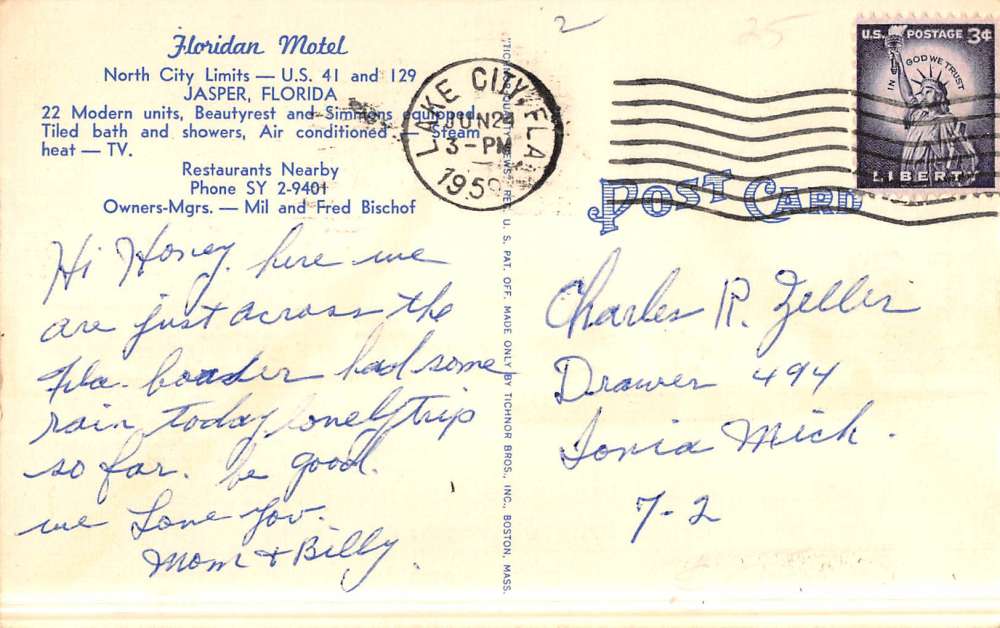 Floridan Motel
North City Limits — U.S. 41 and 129
JASPER, FLORIDA
22 Modern units, Beautyrest and Simmons equipped.
Tiled bath and showers, Air conditioned. Steam
heat — TV.
Restaurants Nearby
Phone SY 2-9401
Owners-Mgrs. — Mil and Fred Bischof
Hi Honey. here we
are just across the
Fla. boader had some
rain today lonely trip
so far. be good.
we Love You.
Mom + Billy
REG. U. S. PAT. OFF. MADE ONLY BY TICHNOR BROS., INC., BOSTON, MASS.
LAKE CITY, FLA.
JUN 24
3-PM
1959
2
25
U.S. POSTAGE 3¢
IN GOD WE TRUST
LIBERTY
POST CARD
Charles R. Zeller
Drawer 494
Ionia Mich.
7-2